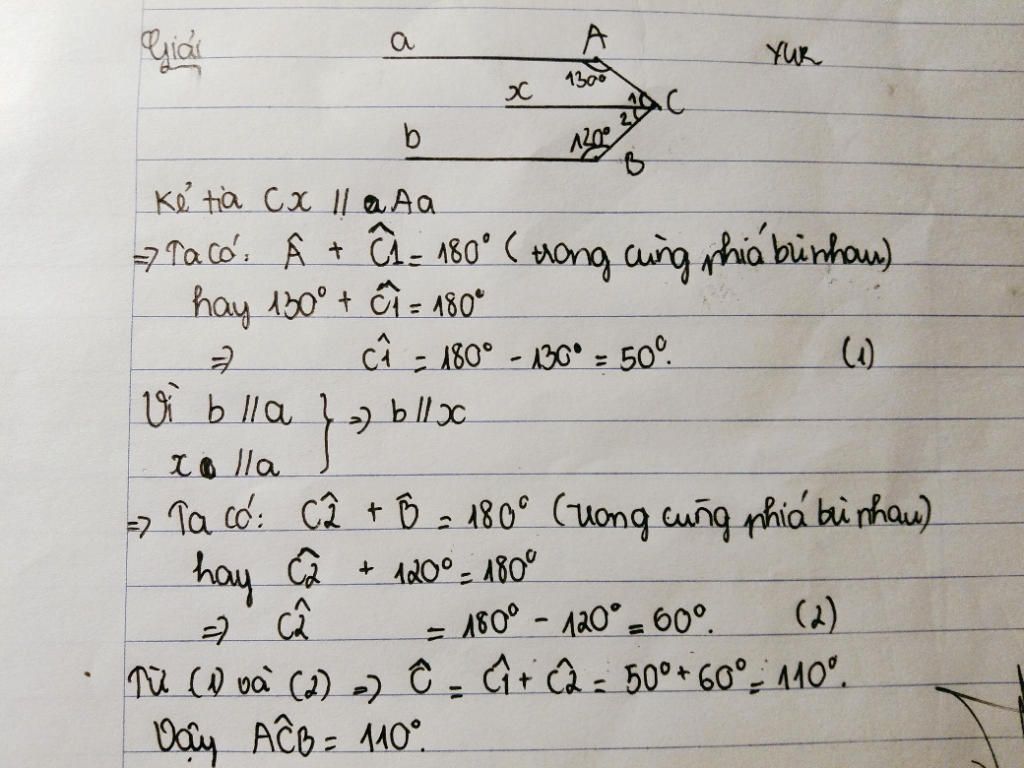 Giải
a A YUR
130°
x 1 C
2
b 120°
B
Kẻ tia Cx // Aa
=> Ta có: Â + Ĉ1 = 180° (trong cùng phía bù nhau)
hay 130° + Ĉ1 = 180°
=> Ĉ1 = 180° - 130° = 50°. (1)
Vì b // a } => b // x
x // a
=> Ta có: Ĉ2 + B̂ = 180° (trong cùng phía bù nhau)
hay Ĉ2 + 120° = 180°
=> Ĉ2 = 180° - 120° = 60°. (2)
Từ (1) và (2) => Ĉ = Ĉ1 + Ĉ2 = 50° + 60° = 110°.
Vậy AĈB = 110°.